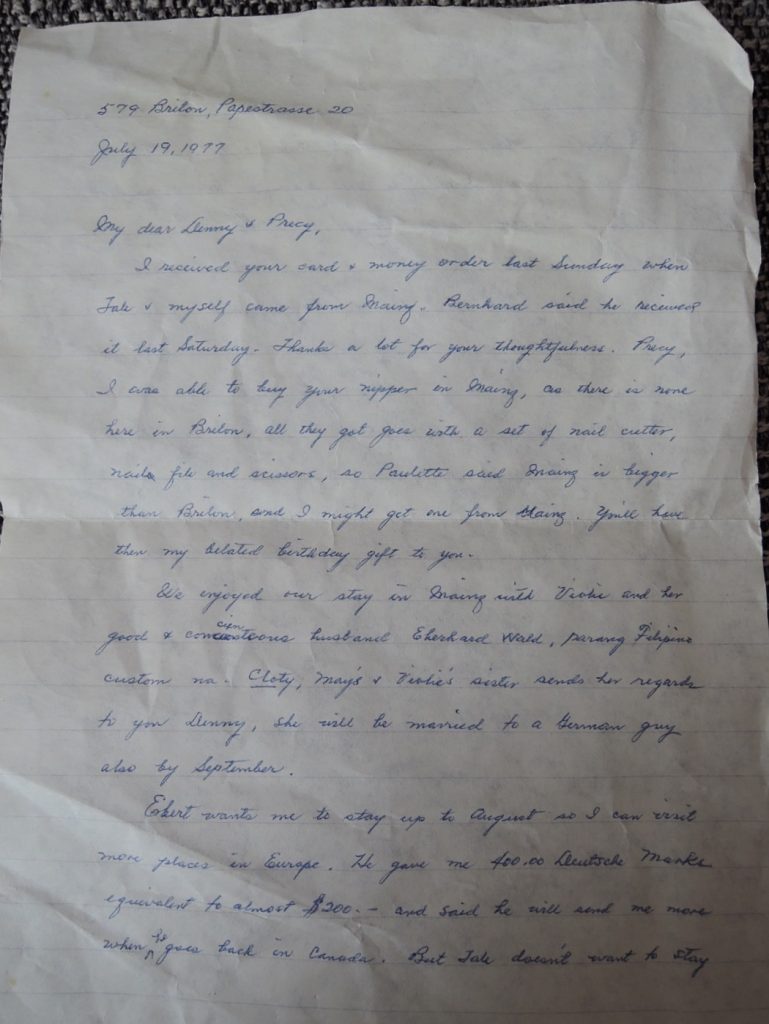 579 Brilon, Papestrasse 20
July 19, 1977
My dear Denny & Precy,
I received your card & money order last Sunday when
Tale & myself came from Mainz. Bernhard said he received
it last Saturday. Thanks a lot for your thoughtfulness. Precy,
I was able to buy your nipper in Mainz, as there is none
here in Brilon, all they got goes with a set of nail cutter,
nail file and scissors, so Paulette said Mainz is bigger
than Brilon, and I might get one from Mainz. You'll have
then my belated birthday gift to you.
We enjoyed our stay in Mainz with Violie and her
good & husband Eberhard Wald, parang Filipino
custom na. Cloty, May's & Violie's sister sends her regards
to you Denny, she will be married to a German guy
also by September.
Ekert wants me to stay up to August so I can visit
more places in Europe. He gave me 400.00 Deutsche Marks
equivalent to almost $200.- and said he will send me more
when he goes back in Canada. But Tale doesn't want to stay